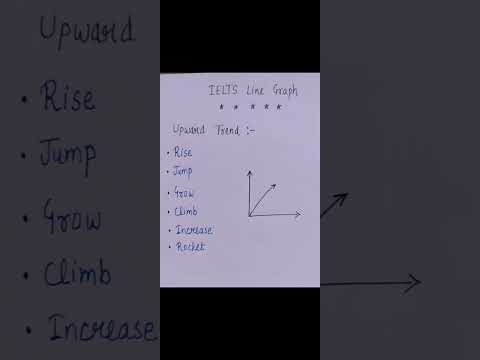 IELTS Line Graph
* * * * *
Upward Trend :-
• Rise
• Jump
• Grow
• Climb
• Increase
• Rocket
Upward
• Rise
• Jump
• Grow
• Climb
• Increase